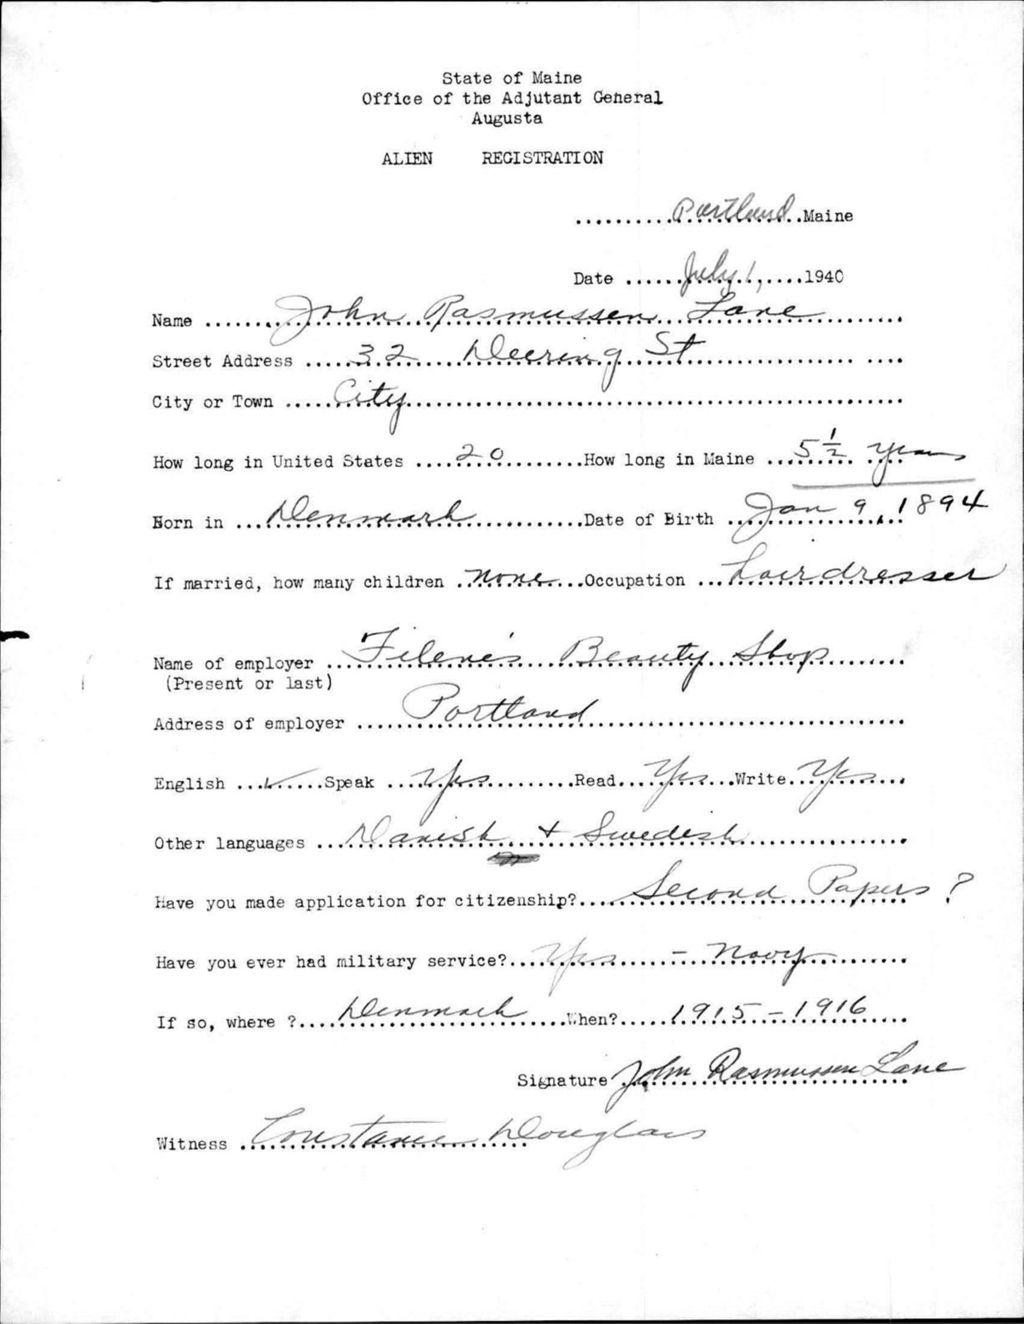 State of Maine
Office of the Adjutant General
Augusta
ALIEN REGISTRATION
..........Portland..Maine
Date ......July 1,.....1940
Name ........John Rasmussen Lane........
Street Address .....32 Deering St........
City or Town .....City........
How long in United States ....20.........How long in Maine ...5 1/2 years
Born in ...Denmark............Date of Birth ..Jan 9, 1894
If married, how many children .none...Occupation ...Hairdresser
Name of employer ...Filene's Beauty Shop.......
(Present or last)
Address of employer .....Portland........
English ...✓.....Speak ...Yes.........Read...Yes...Write..Yes...
Other languages ...Danish + Swedish........
Have you made application for citizenship?....Second Papers ?
Have you ever had military service?...Yes - Navy........
If so, where ?....Denmark......When?.....1915-1916....
Signature John Rasmussen Lane
Witness .Constance Douglass